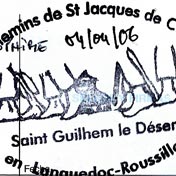 emins de St Jacques de C
04/04/06
Saint Guilhem le Déser
en Languedoc-Roussillo